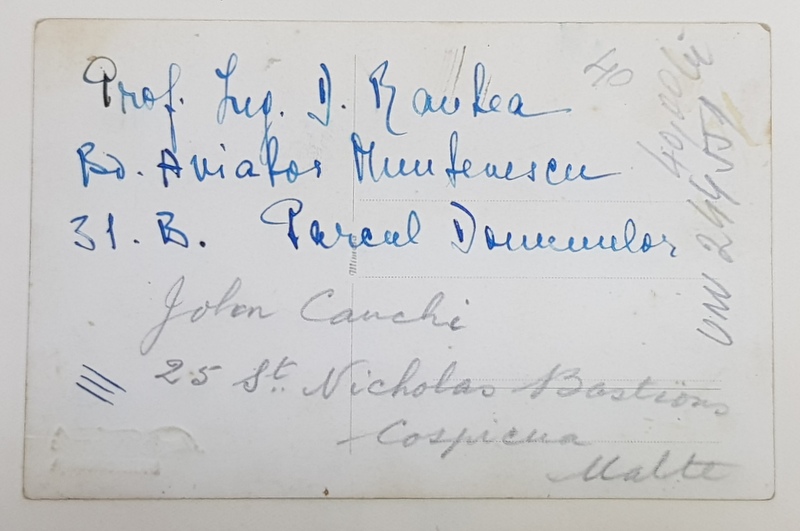 Prof. Ing. D. Rantea
Bd. Aviator Muntenescu
31. B. Parcul Domnulor
John Cauchi
25 St. Nicholas Bastions
Cospicua
Malte
40